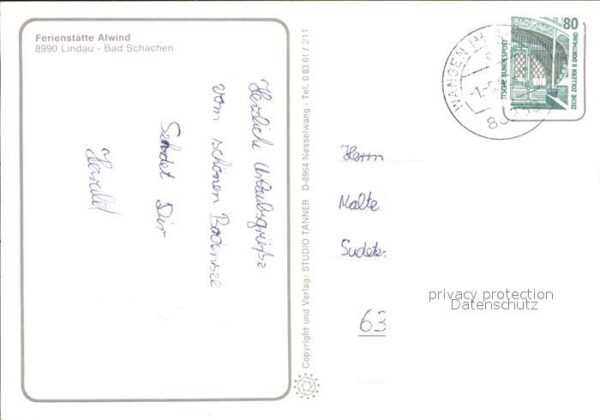 Ferienstätte Alwind
8990 Lindau - Bad Schachen
Herzliche Urlaubsgrüße
vom schönen Bodensee
Sendet Dir
Harald
Copyright und Verlag: STUDIO TANNER D-8964 Nesselwang - Tel. 0 83 61 / 211
WANGEN IM
80
DEUTSCHE BUNDESPOST
ZECHE ZOLLERN II DORTMUND
Herrn
Malte
Sudeten
63
privacy protection
Datenschutz